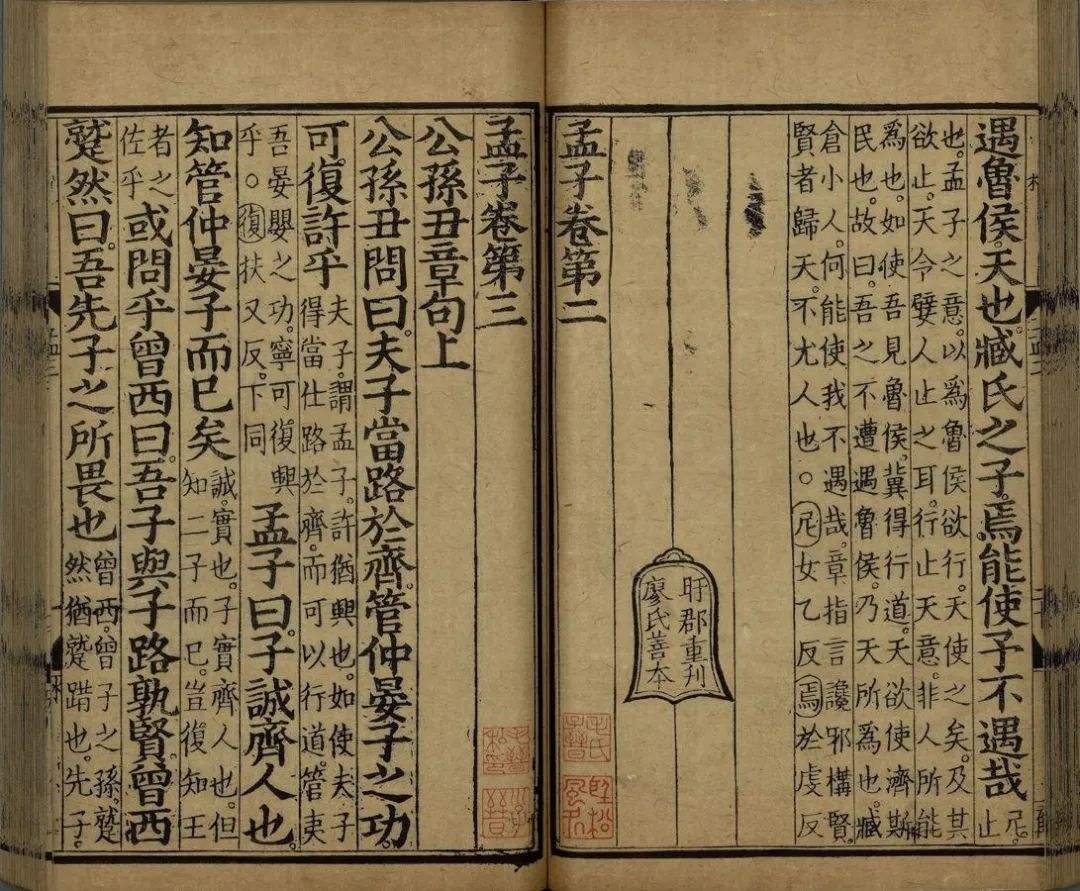 遇魯侯。天也。臧氏之子。焉能使予不遇哉尼。止
也。孟子之意。以爲魯侯欲行。天使之矣。及其
欲止。天令嬖人止之耳。行止天意。非人所能
爲也。如使吾見魯侯。冀得行道。天欲使濟斯
民也。故曰。吾之不遭遇魯侯。乃天所爲也。臧
倉小人。何能使我不遇哉。章指言。讒邪構賢。
賢者歸天。不尤人也。○尼女乙反焉於虔反
盱郡重刊
廖氏善本
孟子卷第二
孟子卷第三
公孫丑章句上
公孫丑問曰。夫子當路於齊。管仲晏子之功。
可復許乎
夫子。謂孟子。許猶興也。如使夫子
得當仕路於齊。而可以行道。管夷
吾晏嬰之功。寧可復興
乎。○復扶又反。下同
孟子曰。子誠齊人也。
知管仲晏子而已矣
誠。實也。子實齊人也。但
知二子而已。豈復知王
者之
佐乎
或問乎曾西曰。吾子與子路孰賢。曾西
蹵然曰。吾先子之所畏也
曾西。曾子之孫。蹵
然猶蹵踖也。先子。